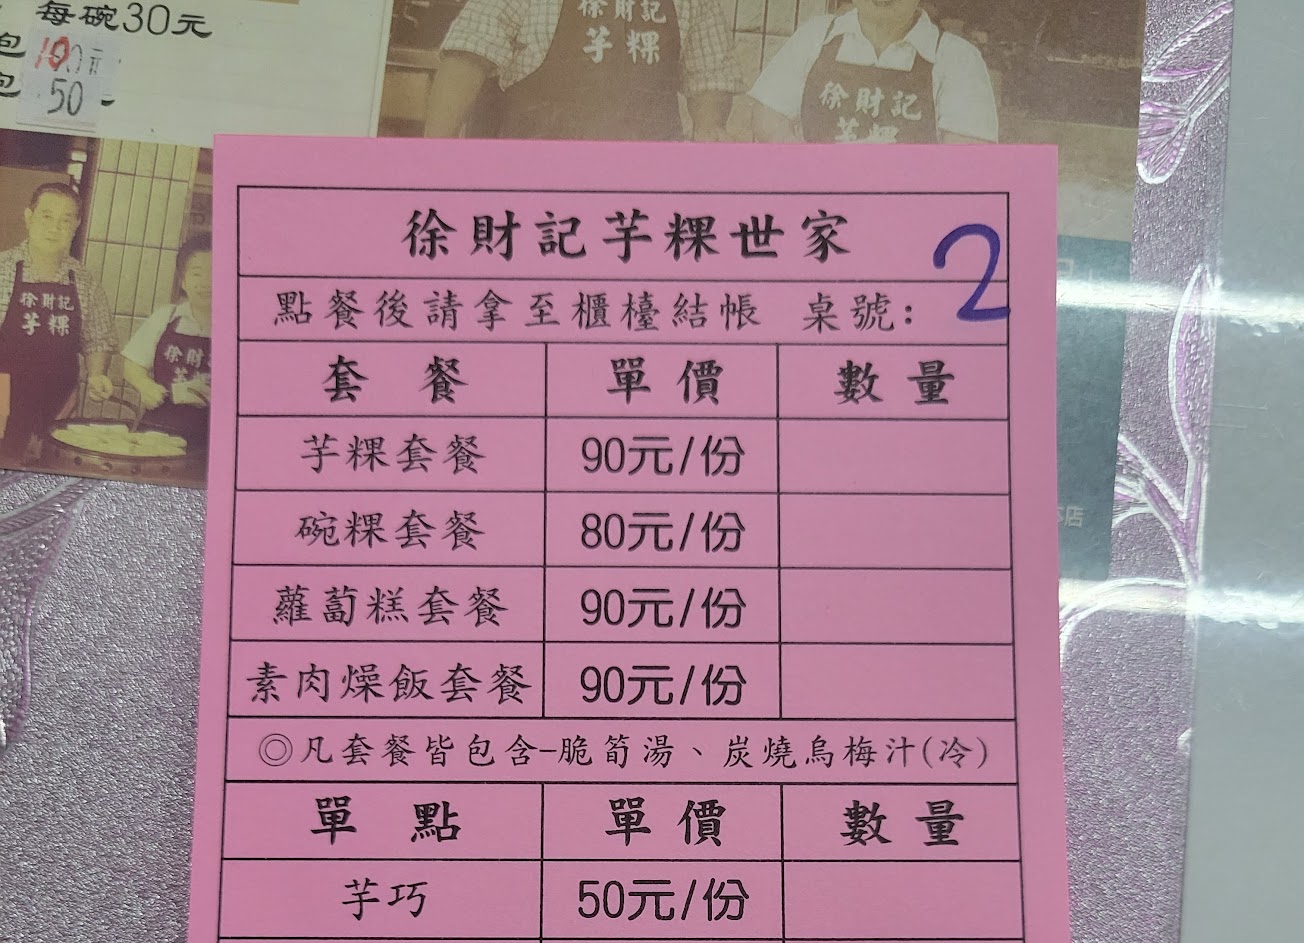 每碗30元
包 10元
包 50元
徐財記
芋粿
徐財記
芋粿
徐財記
芋粿
徐財
徐財記芋粿世家
點餐後請拿至櫃檯結帳 桌號: 2
套 餐 單 價 數 量
芋粿套餐 90元/份
碗粿套餐 80元/份
蘿蔔糕套餐 90元/份
素肉燥飯套餐 90元/份
◎凡套餐皆包含-脆筍湯、炭燒烏梅汁(冷)
單 點 單 價 數 量
芋巧 50元/份
店